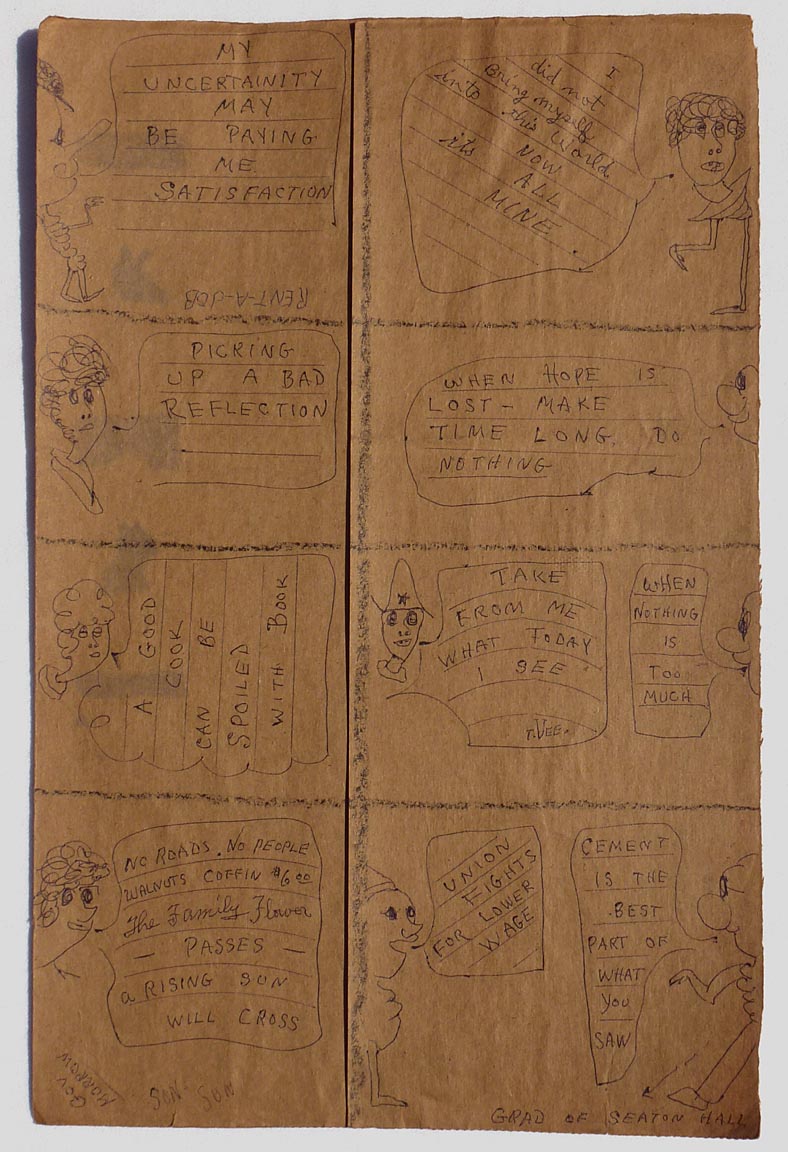 MY
UNCERTAINITY
MAY
BE PAYING
ME
SATISFACTION
RENT-A-JOB
I
did not
Bring myself
into this World
its NOW
ALL
MINE.
PICKING
UP A BAD
REFLECTION
WHEN HOPE IS
LOST - MAKE
TIME LONG. DO
NOTHING
A GOOD
COOK
CAN BE
SPOILED
WITH BOOK
TAKE
FROM ME
WHAT TODAY
I SEE
T. VEE.
WHEN
NOTHING
IS
TOO
MUCH
NO ROADS. NO PEOPLE
WALNUTS COFFIN $6 00
The Family Flower
- PASSES -
a RISING SUN
WILL CROSS
GOV
MORROW
SUN SUN
UNION
FIGHTS
FOR LOWER
WAGE
CEMENT
IS THE
BEST
PART OF
WHAT
YOU
SAW
GRAD OF SEATON HALL